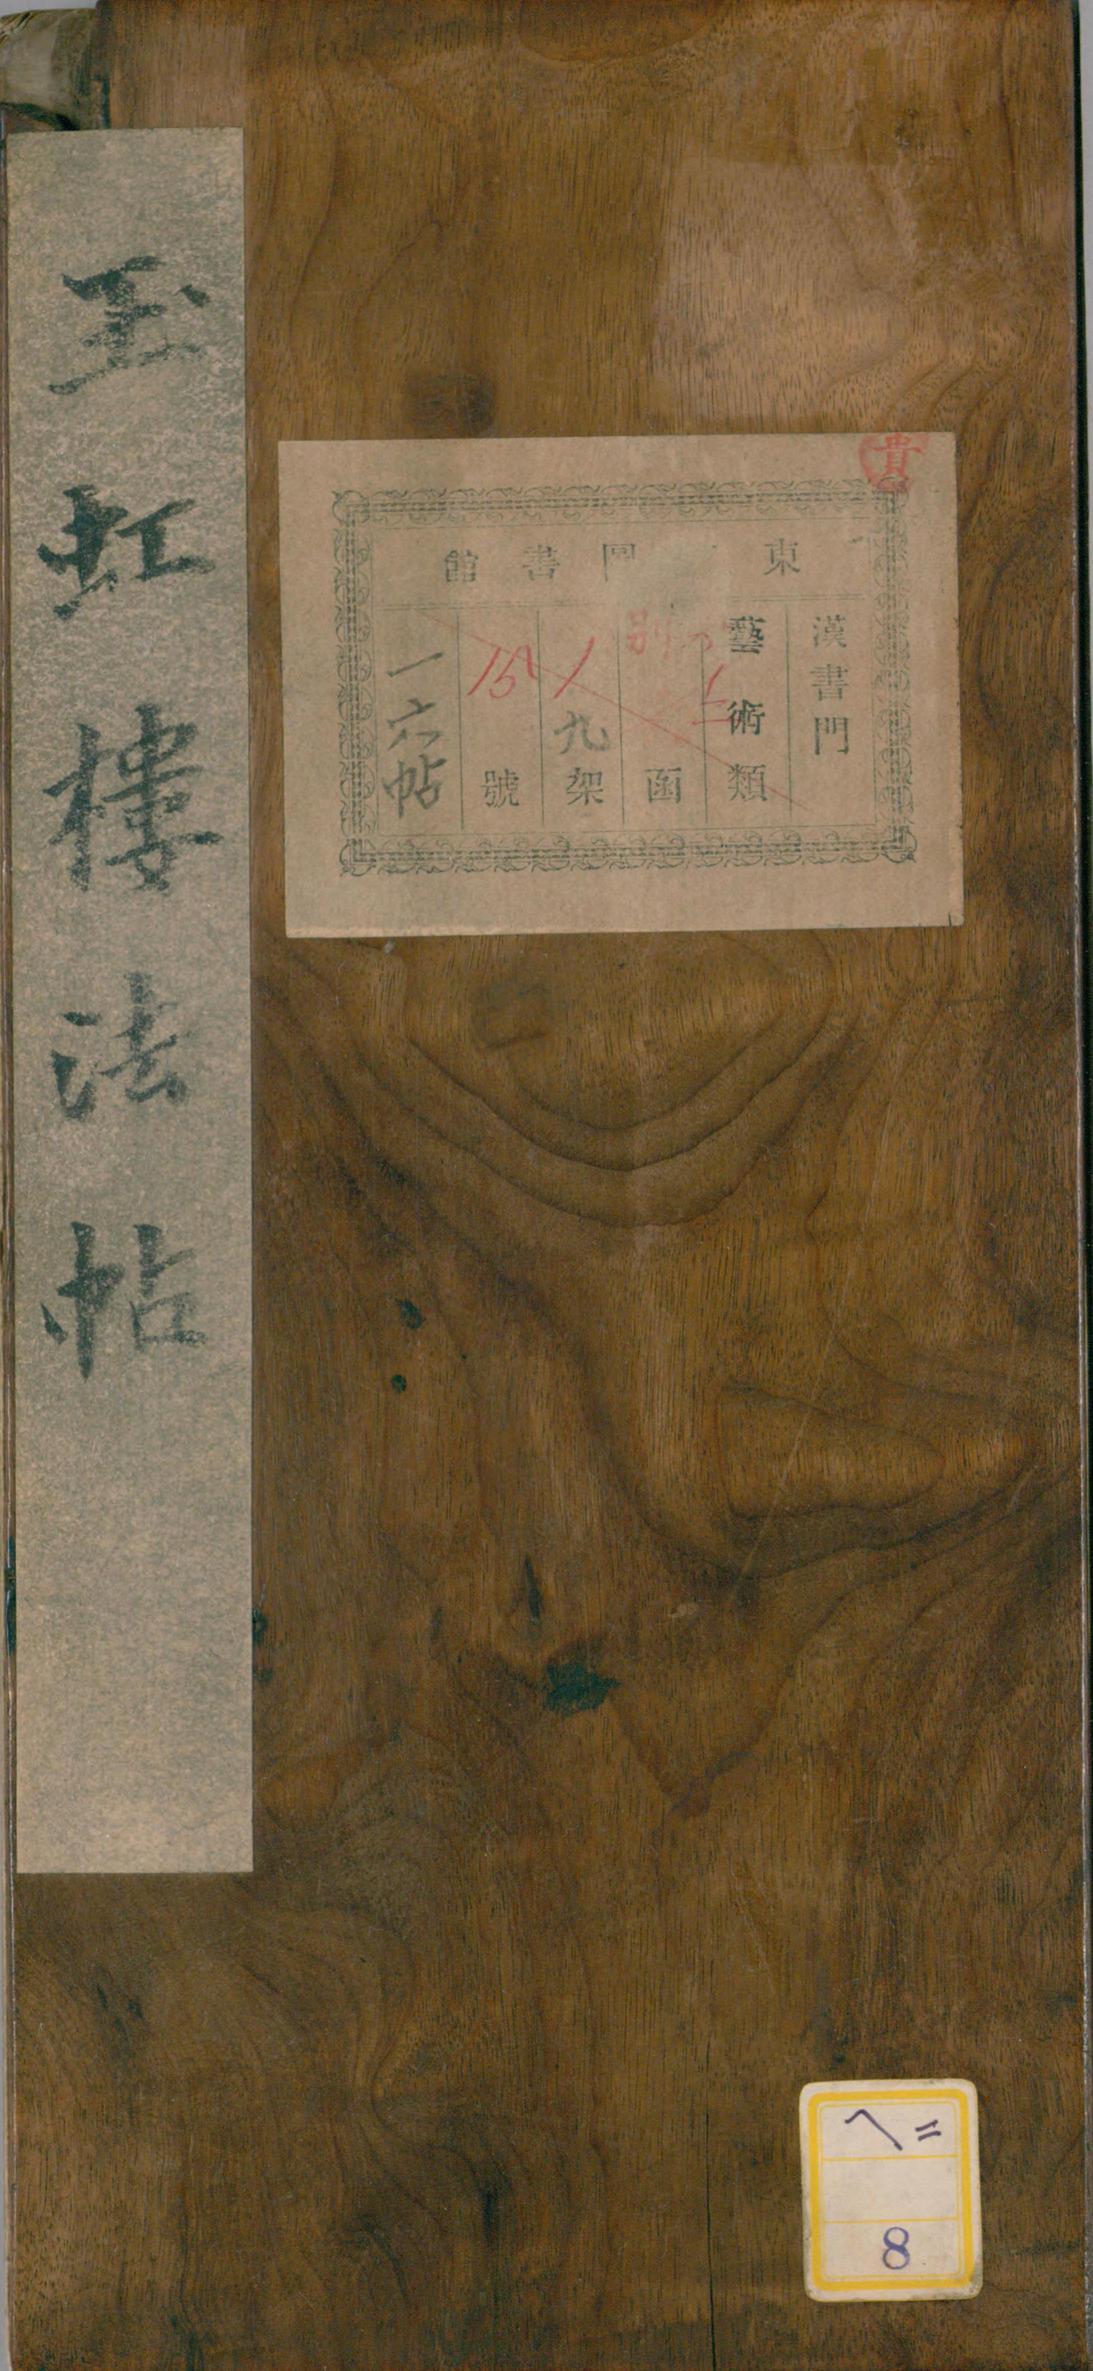 玉虹樓法帖
貴
東 圖書館
漢書門
藝術類
函
九架
號
一六帖
ヘ=
8